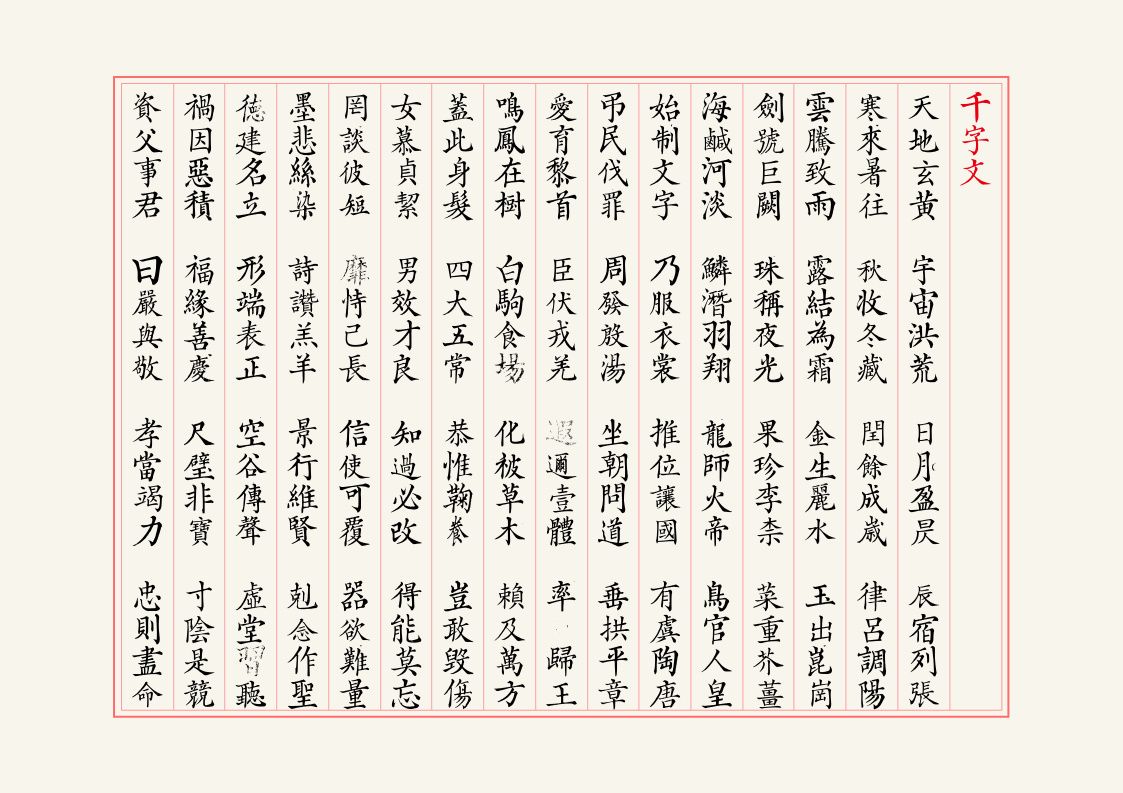 千字文
天地玄黃 宇宙洪荒 日月盈昃 辰宿列張
寒來暑往 秋收冬藏 閏餘成歲 律呂調陽
雲騰致雨 露結為霜 金生麗水 玉出崑崗
劍號巨闕 珠稱夜光 果珍李柰 菜重芥薑
海鹹河淡 鱗潛羽翔 龍師火帝 鳥官人皇
始制文字 乃服衣裳 推位讓國 有虞陶唐
弔民伐罪 周發殷湯 坐朝問道 垂拱平章
愛育黎首 臣伏戎羌 遐邇壹體 率歸王
鳴鳳在樹 白駒食場 化被草木 賴及萬方
蓋此身髮 四大五常 恭惟鞠養 豈敢毀傷
女慕貞絜 男效才良 知過必改 得能莫忘
罔談彼短 靡恃己長 信使可覆 器欲難量
墨悲絲染 詩讚羔羊 景行維賢 剋念作聖
德建名立 形端表正 空谷傳聲 虛堂習聽
禍因惡積 福緣善慶 尺璧非寶 寸陰是競
資父事君 曰嚴與敬 孝當竭力 忠則盡命